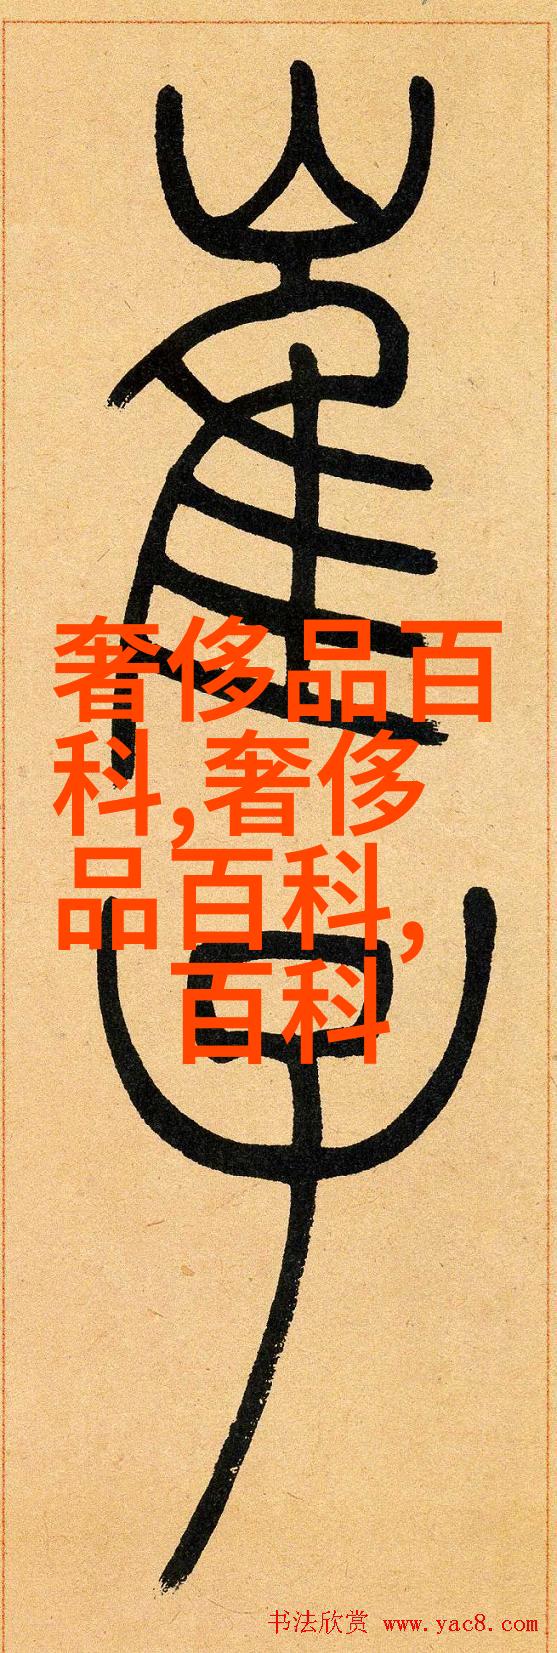 崔子
奢侈品百
科,奢侈
品百科,
百科
书法欣赏 www.yac8.com